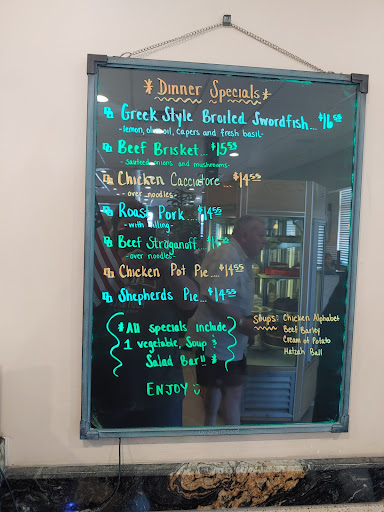 * Dinner Specials *
Greek Style Broiled Swordfish... $16.55
-lemon, olive oil, capers and fresh basil-
Beef Brisket... $15.55
-sauteed onions and mushrooms-
Chicken Cacciatore... $14.55
-over noodles-
Roast Pork... $14.55
-with filling-
Beef Stroganoff...
-over noodles-
Chicken Pot Pie... $14.55
Shepherds Pie... $14.55
* All specials include
1 vegetable, Soup &
Salad Bar!! *
ENJOY
Soups: Chicken Alphabet
Beef Barley
Cream of Potato
Matzah Ball